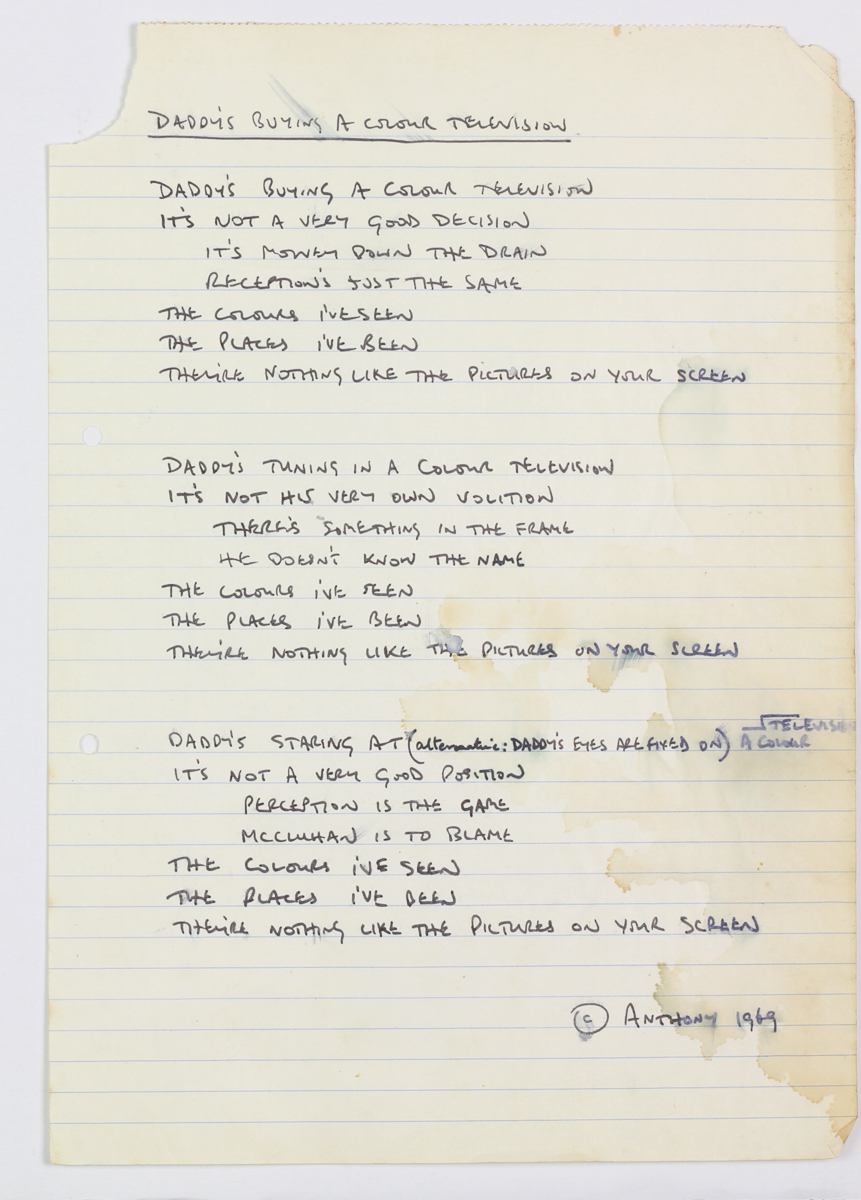 DADDY'S BUYING A COLOUR TELEVISION
DADDY'S BUYING A COLOUR TELEVISION
IT'S NOT A VERY GOOD DECISION
IT'S MONEY DOWN THE DRAIN
RECEPTION'S JUST THE SAME
THE COLOURS I'VE SEEN
THE PLACES I'VE BEEN
THEY'RE NOTHING LIKE THE PICTURES ON YOUR SCREEN
DADDY'S TUNING IN A COLOUR TELEVISION
IT'S NOT HIS VERY OWN VOLITION
THERE'S SOMETHING IN THE FRAME
HE DOESN'T KNOW THE NAME
THE COLOURS I'VE SEEN
THE PLACES I'VE BEEN
THEY'RE NOTHING LIKE THE PICTURES ON YOUR SCREEN
DADDY'S STARING AT (alternative: DADDY'S EYES ARE FIXED ON) A COLOUR TELEVISION
IT'S NOT A VERY GOOD POSITION
PERCEPTION IS THE GAME
MCCLUHAN IS TO BLAME
THE COLOURS I'VE SEEN
THE PLACES I'VE BEEN
THEY'RE NOTHING LIKE THE PICTURES ON YOUR SCREEN
© ANTHONY 1969